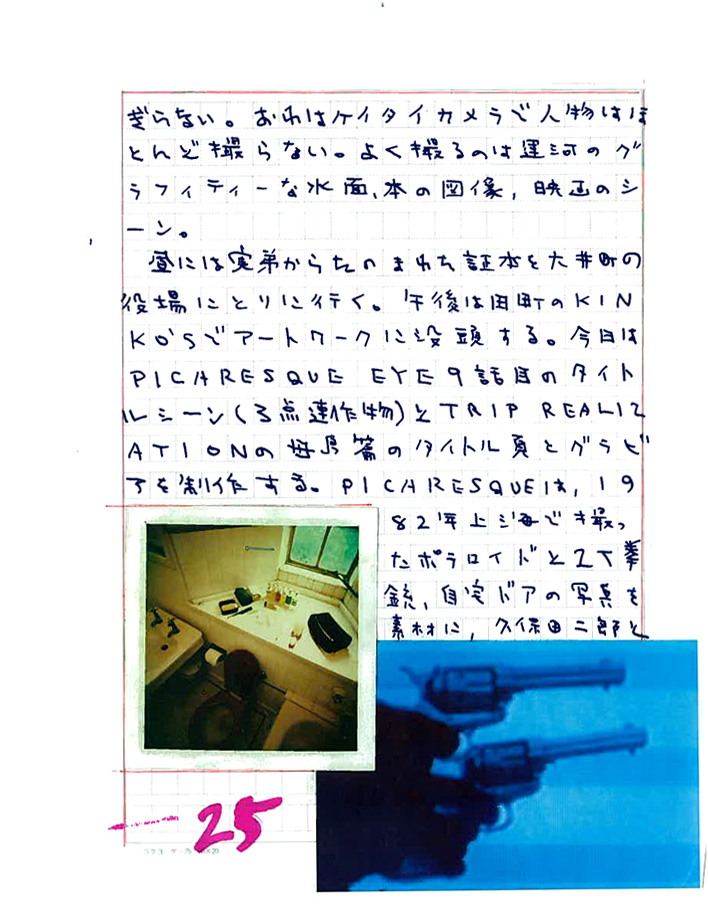 ぎらない。おれはケイタイカメラで人物はほ
とんど撮らない。よく撮るのは運河のグ
ラフィティーな水面、本の図像，映画のシ
ーン。
昼には実弟からたのまれた証本を大井町の
役場にとりに行く。午後は田町のKIN
KO'Sでアートワークに没頭する。今日は
PICARESQUE EYE9話目のタイト
ルシーン(3点連作物)とTRIP REALIZ
ATIONの母島篇のタイトル頁とグラビ
アを制作する。PICARESQUEは，19
82年上海で撮っ
たポラロイドと2丁拳
銃，自宅ドアの写真を
素材に，久保田二郎と
25
コクヨ ケ-75 20×20